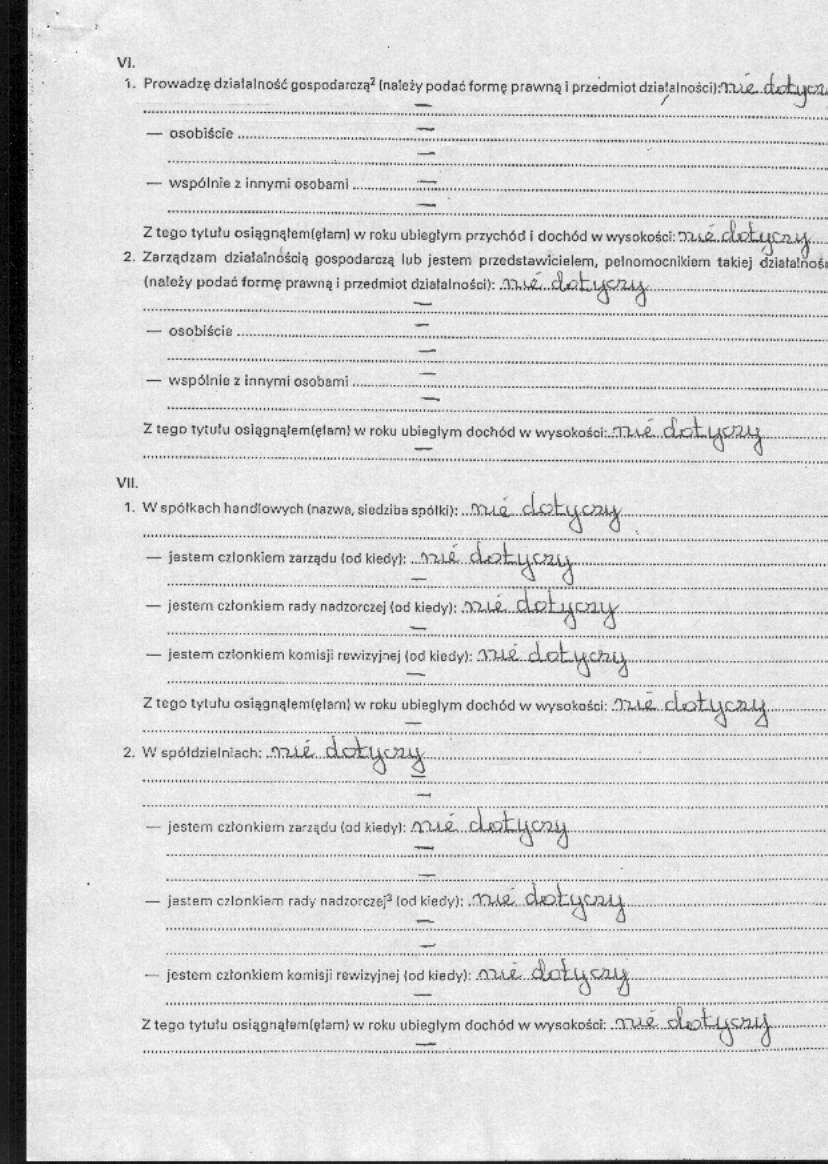 VI.
1. Prowadzę działalność gospodarczą² (należy podać formę prawną i przedmiot działalności): nie dotycz
—
— osobiście .......... —
—
— wspólnie z innymi osobami .......... —
—
Z tego tytułu osiągnąłem(ęłam) w roku ubiegłym przychód i dochód w wysokości: nie dotyczy
2. Zarządzam działalnością gospodarczą lub jestem przedstawicielem, pełnomocnikiem takiej działalnoś
(należy podać formę prawną i przedmiot działalności): nie dotyczy
—
— osobiście .......... —
—
— wspólnie z innymi osobami .......... —
—
Z tego tytułu osiągnąłem(ęłam) w roku ubiegłym dochód w wysokości: nie dotyczy
—
VII.
1. W spółkach handlowych (nazwa, siedziba spółki): nie dotyczy
— jestem członkiem zarządu (od kiedy): nie dotyczy
—
— jestem członkiem rady nadzorczej (od kiedy): nie dotyczy
—
— jestem członkiem komisji rewizyjnej (od kiedy): nie dotyczy
—
Z tego tytułu osiągnąłem(ęłam) w roku ubiegłym dochód w wysokości: nie dotyczy
—
2. W spółdzielniach: nie dotyczy
—
—
— jestem członkiem zarządu (od kiedy): nie dotyczy
—
—
— jestem członkiem rady nadzorczej³ (od kiedy): nie dotyczy
—
—
— jestem członkiem komisji rewizyjnej (od kiedy): nie dotyczy
—
Z tego tytułu osiągnąłem(ęłam) w roku ubiegłym dochód w wysokości: nie dotyczy
—